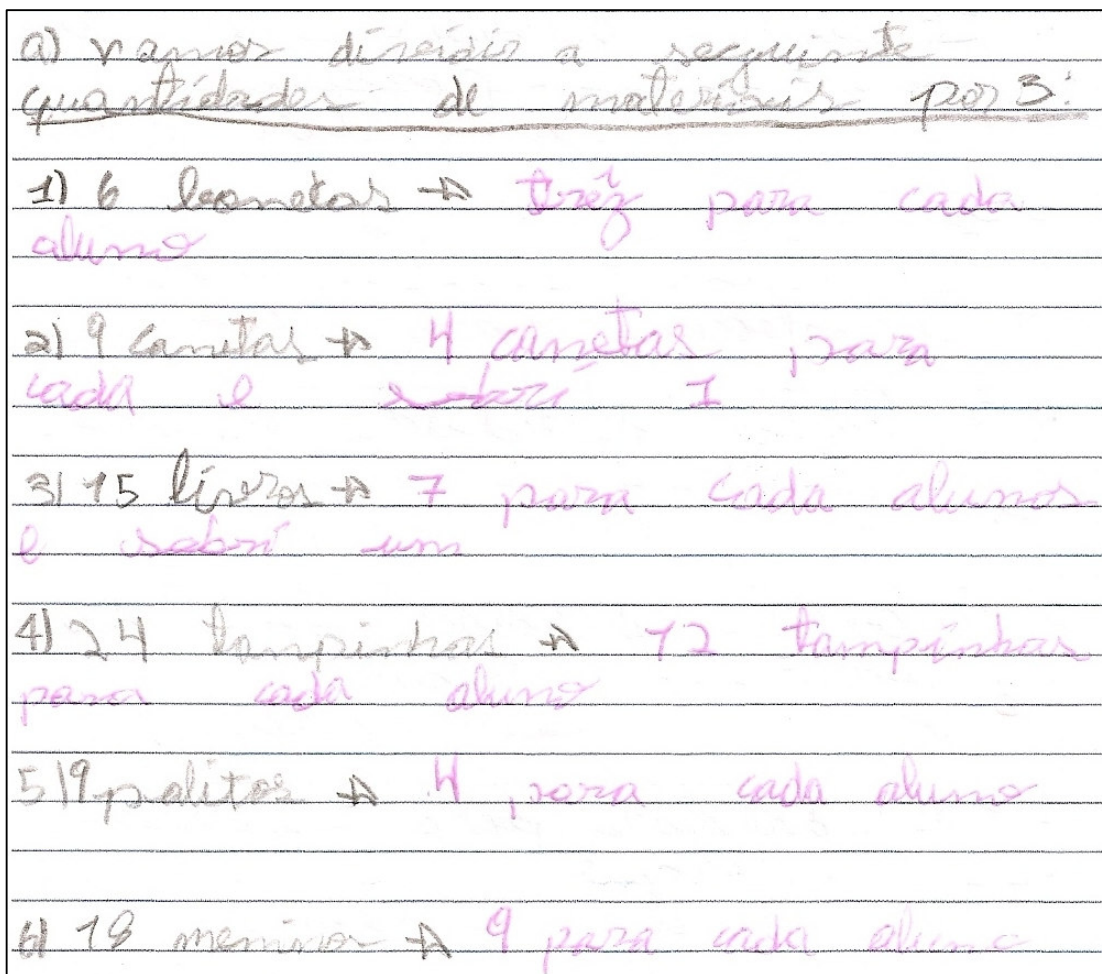 a) vamos dividir a seguinte
quantidades de materiais por 3:
1) 6 bonetas → trêz para cada
aluno
2) 9 canetas → 4 canetas para
cada e sobri 1
3) 15 livros → 7 para cada alunos
e sobri um
4) 24 tampinhas → 12 tampinhas
para cada aluno
5) 9 palitos → 4 para cada aluno
6) 18 meninos → 9 para cada aluno